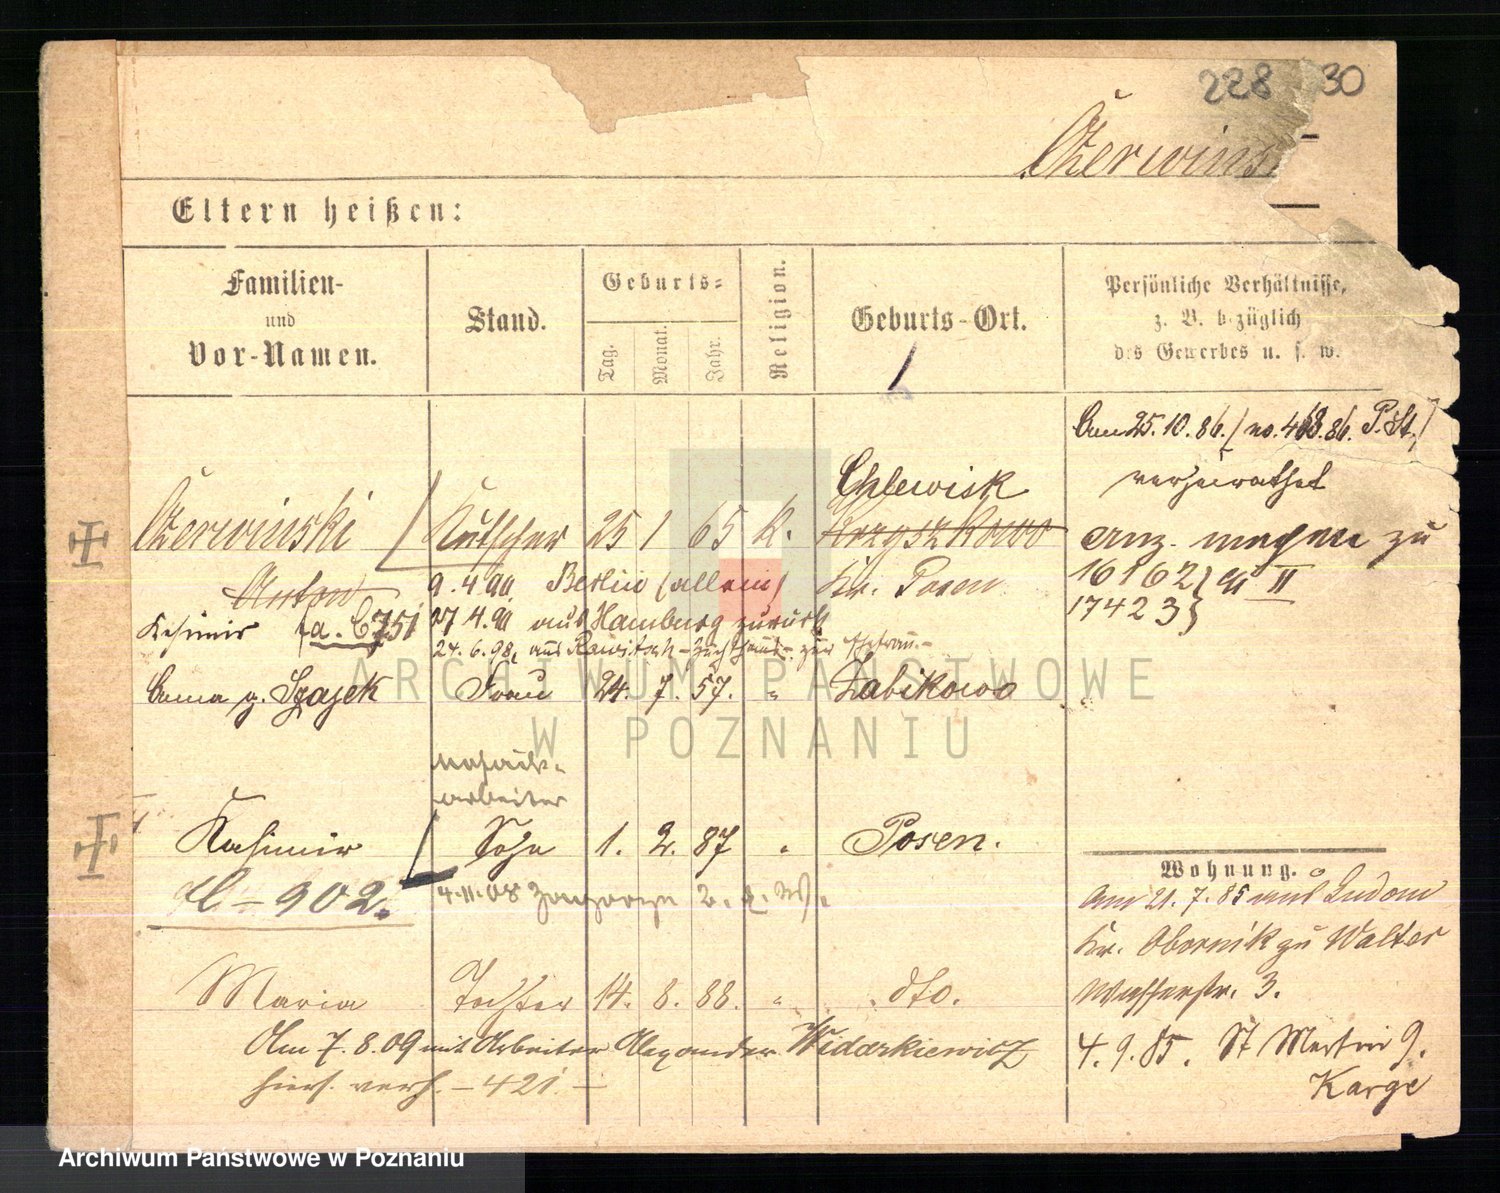 228 30
Czerwins
Eltern heißen:
Familien-
und
Vor-Namen.
Stand.
Geburts-
Tag.
Monat.
Jahr.
Religion.
Geburts-Ort.
Persönliche Verhältnisse,
z. B. bezüglich
des Gewerbes u. s. w.
Am 25.10.86. / no. 468.86. P. St. /
verheirathet
Chlewisk
Czerwinski Kutscher 25 1 65 K.
zu
Anton 9.4.90. Berlin (allein) Kr. Posen
16162 II
17423
Kasimir a. C 751 27 4.90 aus Hamburg zurück
24.6.98. aus Rawitsch - Zuchthaus - zur Ehefrau.-
g. Szajek Frau 24. 7. 57. " Żabikowo
arbeiter
Kasimir Sohn 1. 2. 87 " Posen.
- 902.
4.11.08
Wohnung.
Am 21.7.85 aus Ludom
Kr. Obornik zu Walter
Wasserstr. 3.
Maria Tochter 14. 8. 88. " dto.
Am 7.8.09 mit Arbeiter Alexander Widarkiewicz
hiers. verh. - 421. -
4.9.85. St Martin 9.
Karge
ARCHIWUM PAŃSTWOWE
W POZNANIU
Archiwum Państwowe w Poznaniu